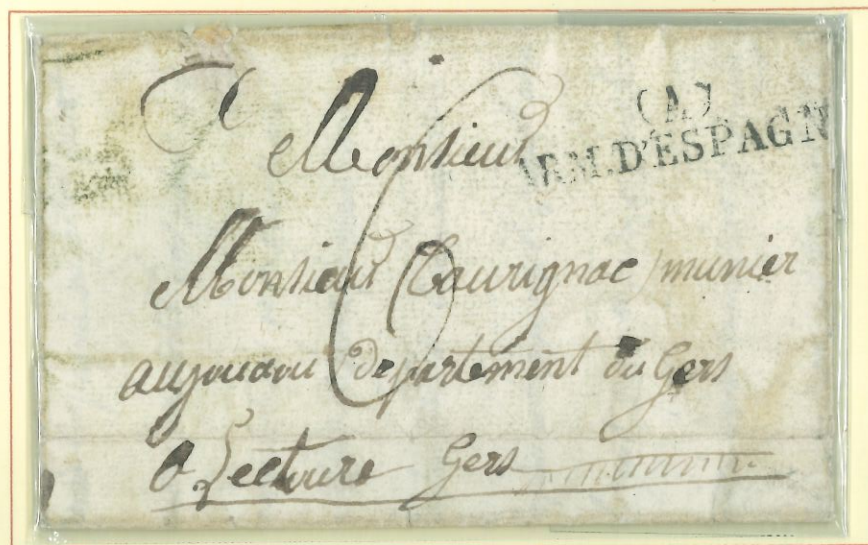 A
(A)
ARM. D'ESPAGN
Monsieur
6
Monsieur Laurignac munier
departement du Gers
a Lectoure Gers